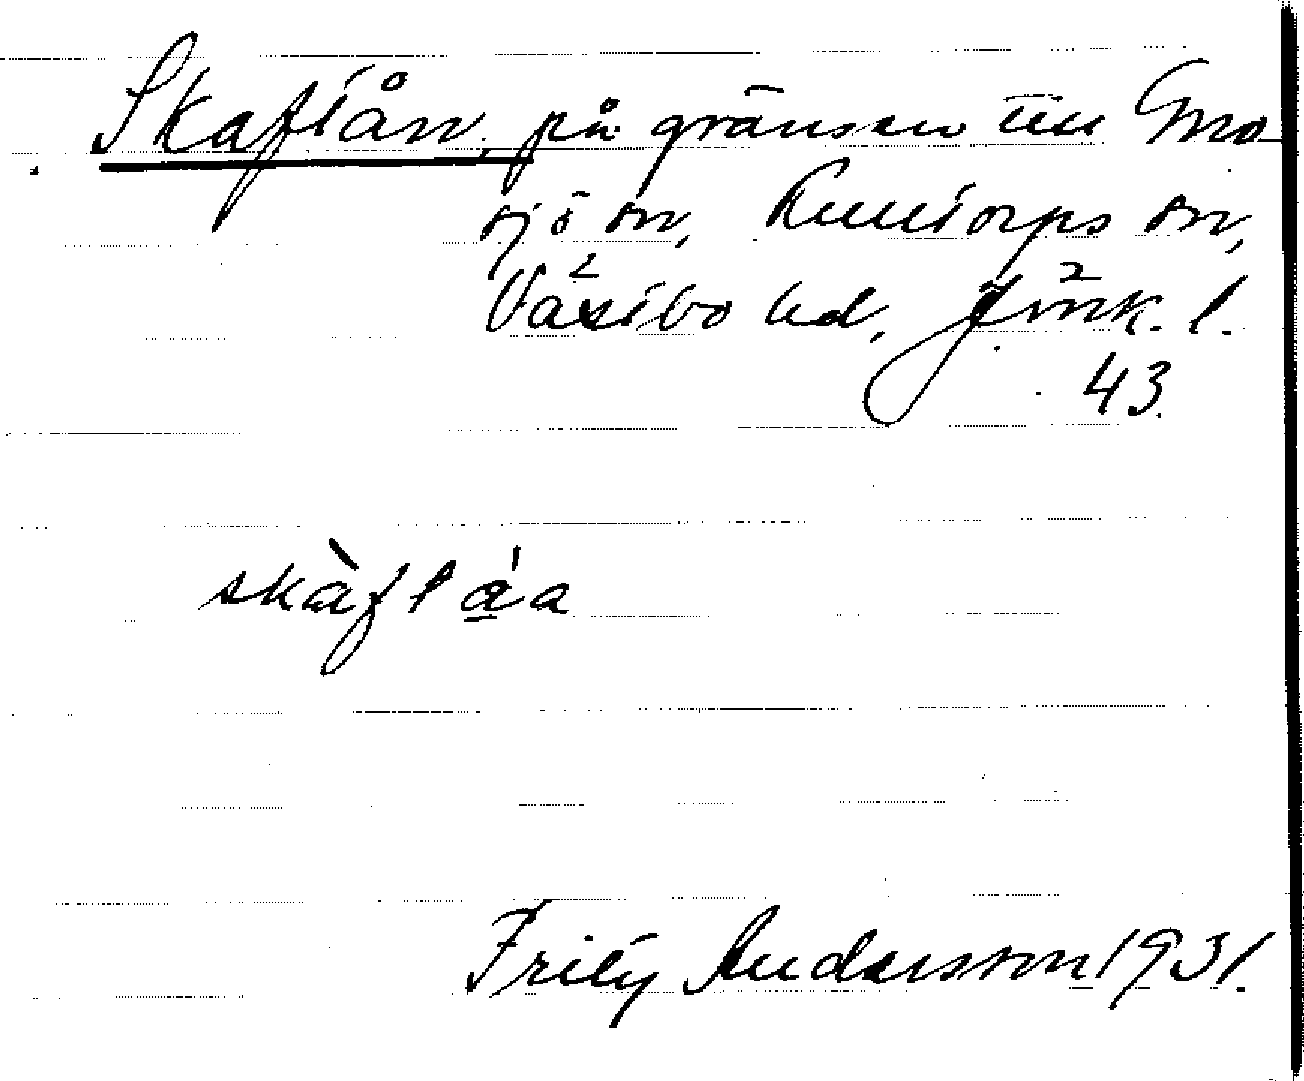 Skaftån, på gränsen till Gno
sjö sn, Kulltorps sn,
Västbo hd, Jönk. l.
43.
skàftá̱a
Fritz Andersson 1931.